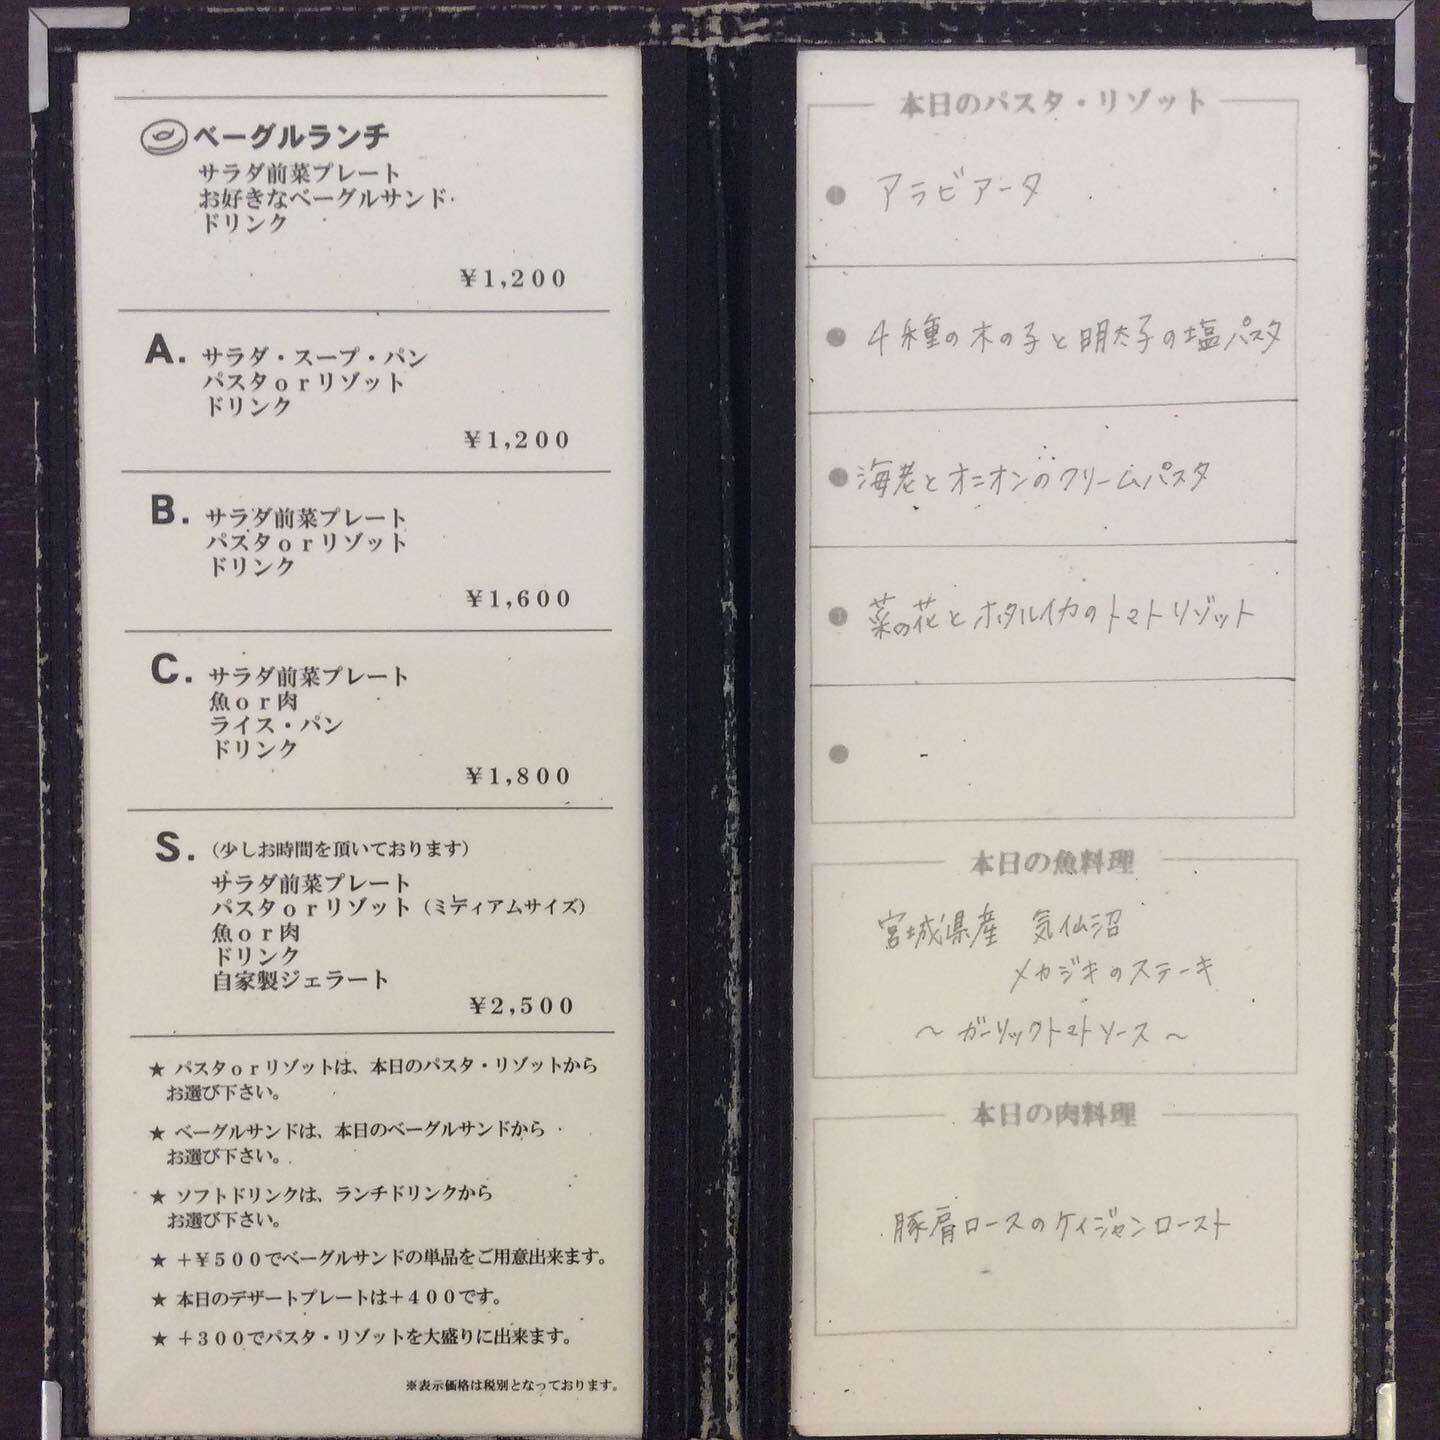 ベーグルランチ
サラダ前菜プレート
お好きなベーグルサンド
ドリンク
¥1,200
A. サラダ・スープ・パン
パスタorリゾット
ドリンク
¥1,200
B. サラダ前菜プレート
パスタorリゾット
ドリンク
¥1,600
C. サラダ前菜プレート
魚or肉
ライス・パン
ドリンク
¥1,800
S. (少しお時間を頂いております)
サラダ前菜プレート
パスタorリゾット(ミディアムサイズ)
魚or肉
ドリンク
自家製ジェラート
¥2,500
★ パスタorリゾットは、本日のパスタ・リゾットから
お選び下さい。
★ ベーグルサンドは、本日のベーグルサンドから
お選び下さい。
★ ソフトドリンクは、ランチドリンクから
お選び下さい。
★ +¥500でベーグルサンドの単品をご用意出来ます。
★ 本日のデザートプレートは+400です。
★ +300でパスタ・リゾットを大盛りに出来ます。
※表示価格は税別となっております。
本日のパスタ・リゾット
● アラビアータ
● 4種の木の子と明太子の塩パスタ
● 海老とオニオンのクリームパスタ
● 菜の花とホタルイカのトマトリゾット
●
本日の魚料理
宮城県産 気仙沼
メカジキのステーキ
～ガーリックトマトソース～
本日の肉料理
豚肩ロースのケイジャンロースト